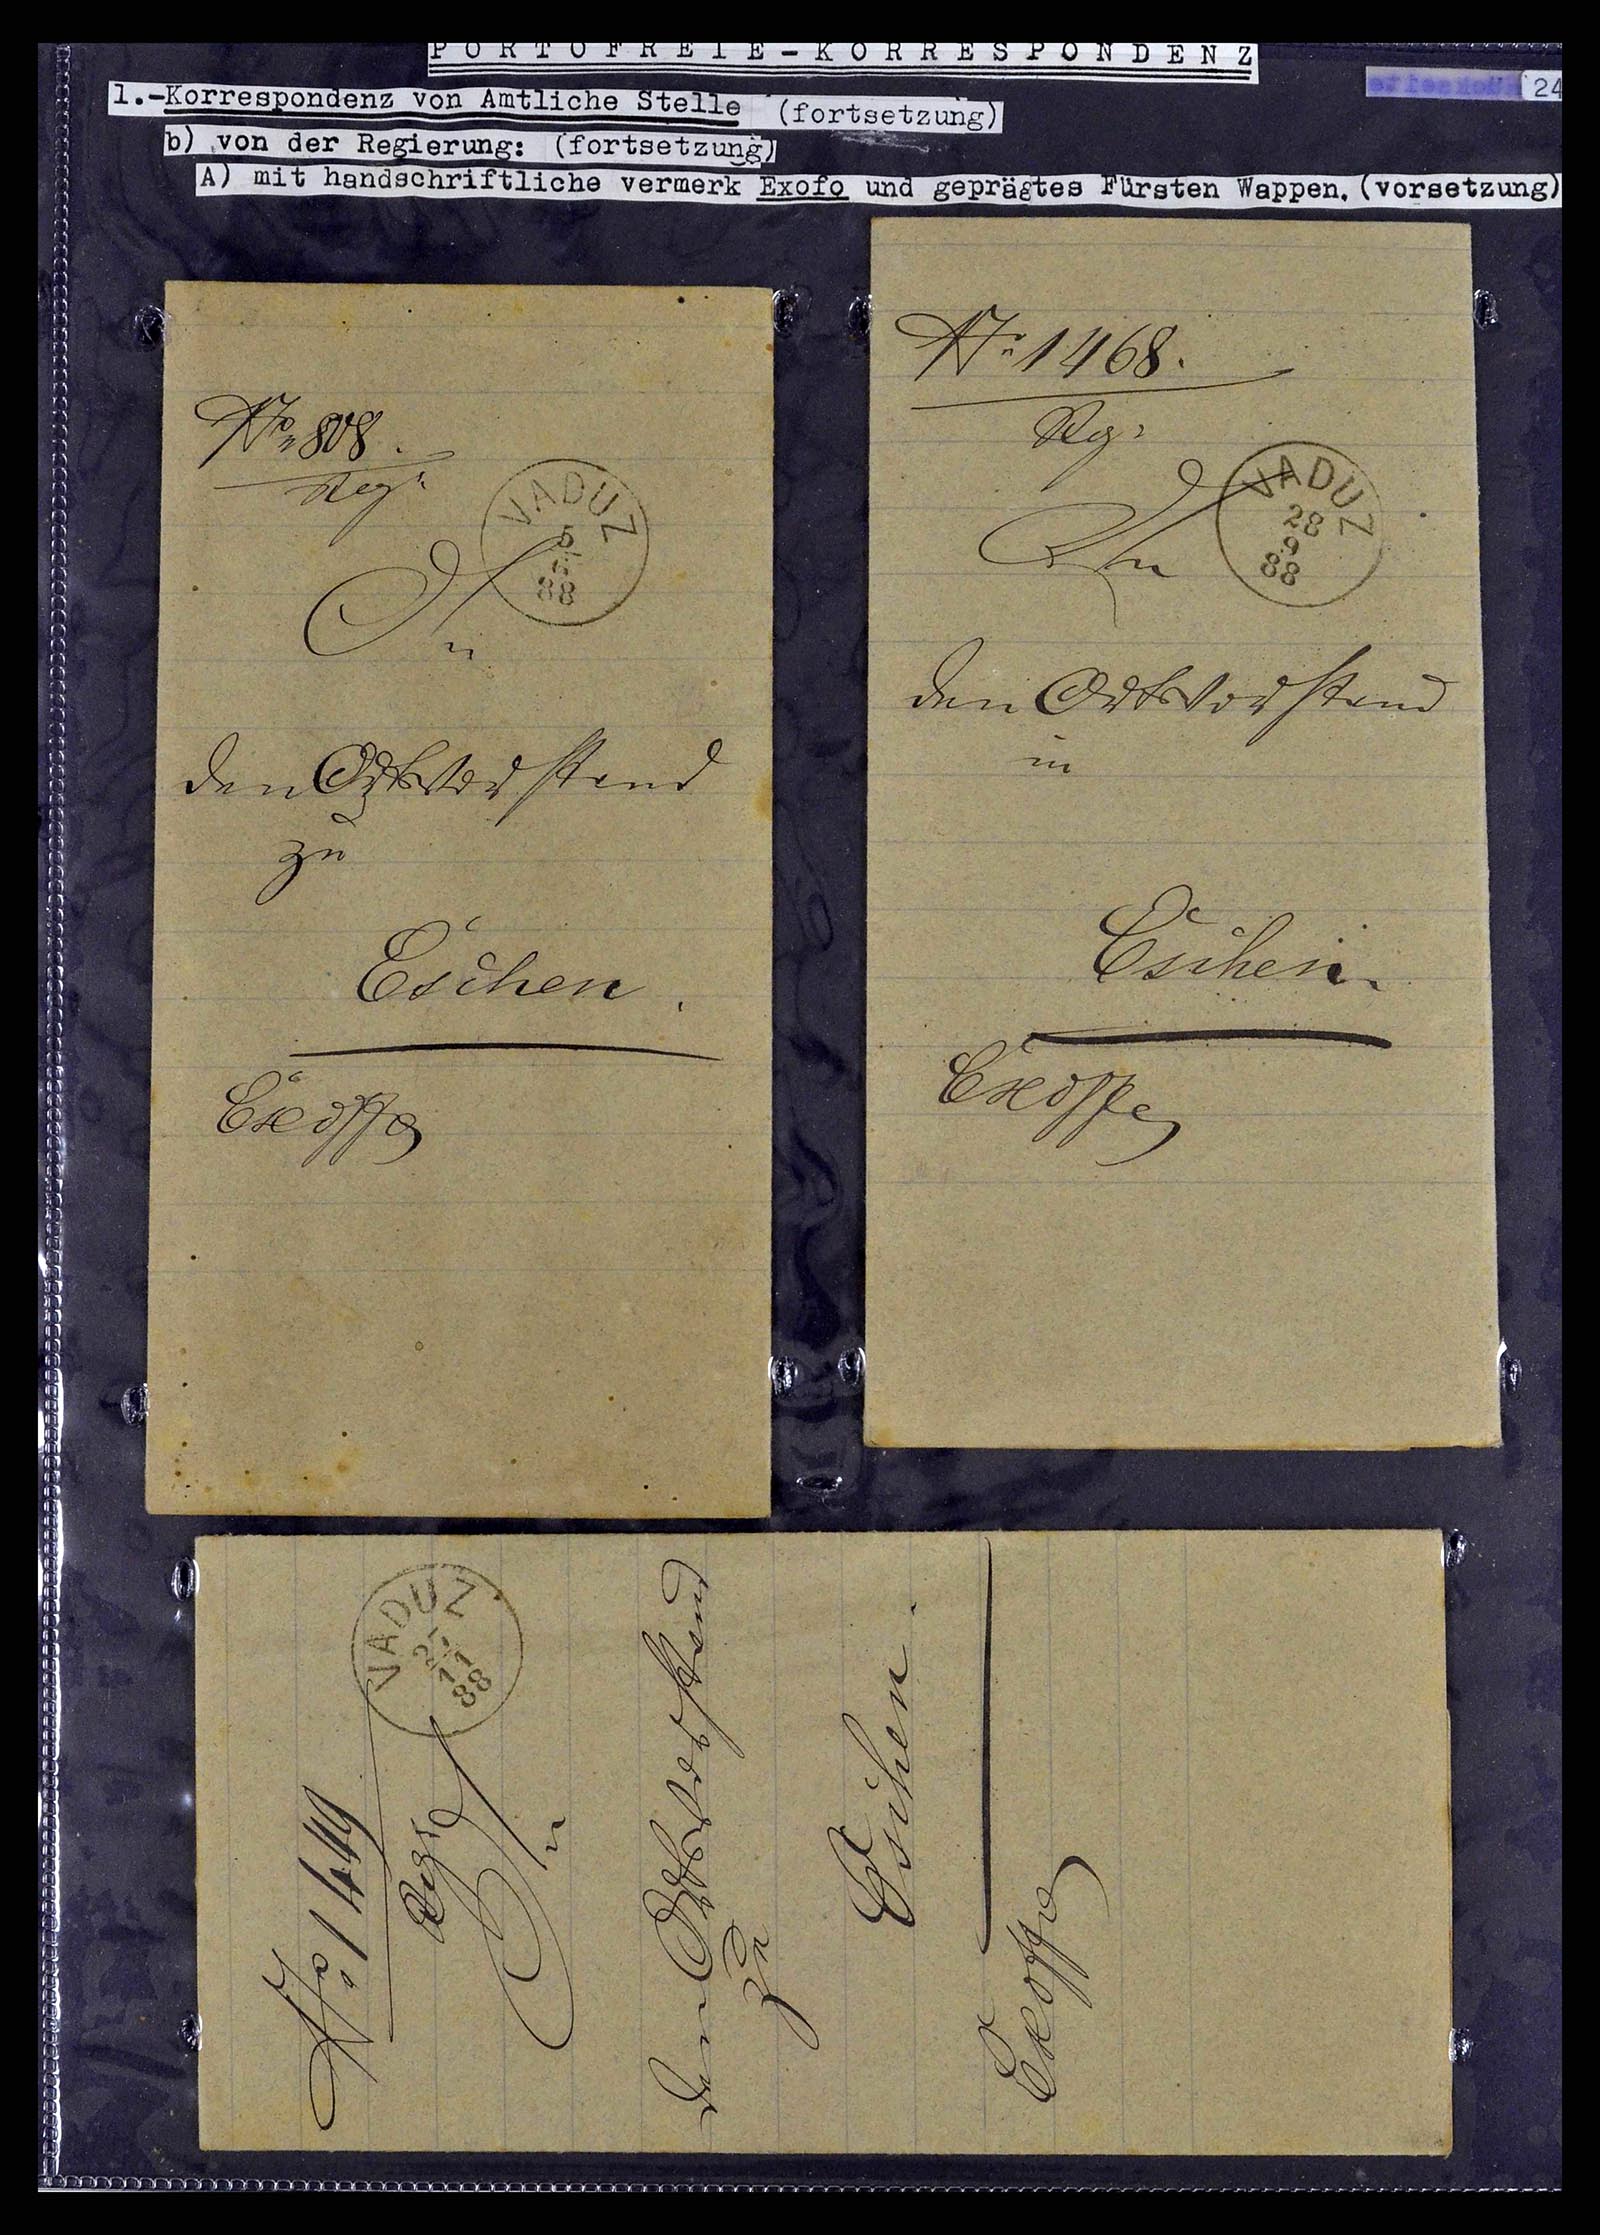 PORTOFREIE-KORRESPONDENZ
24
1.-Korrespondenz von Amtliche Stelle (fortsetzung)
b) von der Regierung: (fortsetzung)
A) mit handschriftliche vermerk Exofo und geprägtes Fürsten Wappen. (vorsetzung)
No 808.
Reg.
VADUZ
5
88
An
den Ortsvorstand
zu
Eschen.
Exoffo
No 1468.
Reg.
VADUZ
28
9
88
An
den Ortsvorstand
in
Eschen.
Exoffo
No 1449
Reg.
VADUZ
11
88
An
den Ortsvorstand
zu
Eschen.
Exoffo